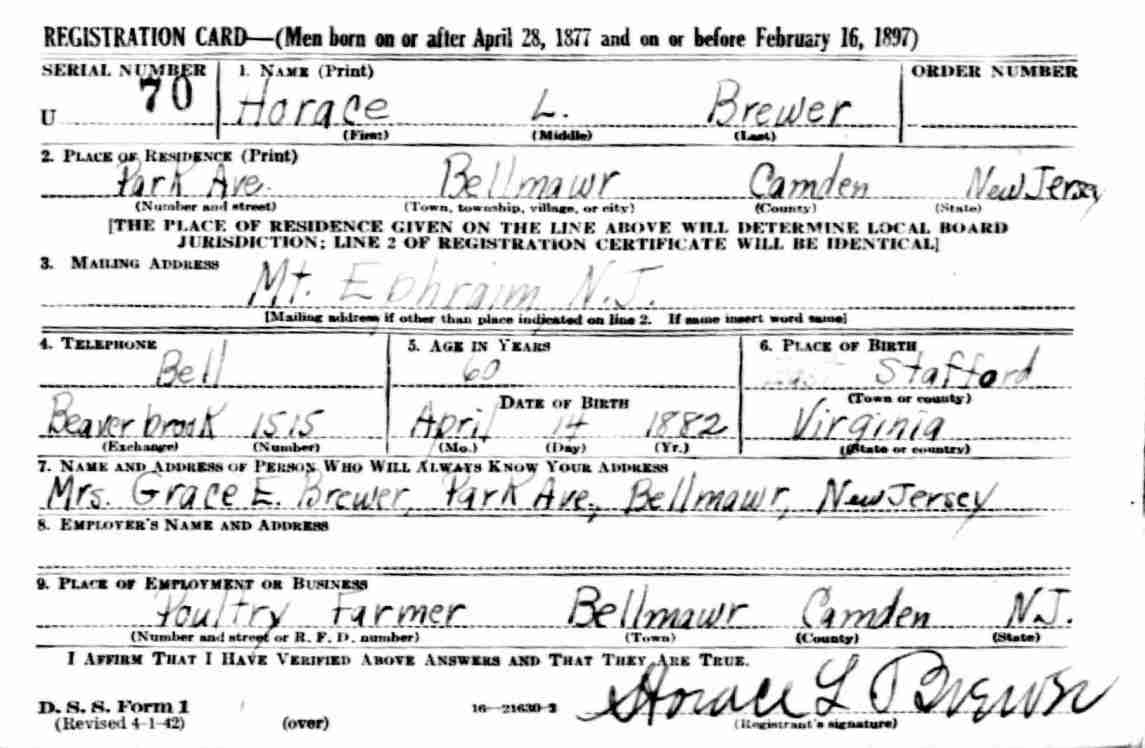 REGISTRATION CARD—(Men born on or after April 28, 1877 and on or before February 16, 1897)
SERIAL NUMBER 1. NAME (Print) ORDER NUMBER
U 70 Horace L. Brewer
(First) (Middle) (Last)
2. PLACE OF RESIDENCE (Print)
Park Ave. Bellmawr Camden New Jersey
(Number and street) (Town, township, village, or city) (County) (State)
[THE PLACE OF RESIDENCE GIVEN ON THE LINE ABOVE WILL DETERMINE LOCAL BOARD
JURISDICTION; LINE 2 OF REGISTRATION CERTIFICATE WILL BE IDENTICAL]
3. MAILING ADDRESS
Mt. Ephraim N.J.
[Mailing address if other than place indicated on line 2. If same insert word same]
4. TELEPHONE 5. AGE IN YEARS 6. PLACE OF BIRTH
Bell 60 Stafford
DATE OF BIRTH (Town or county)
Beaverbrook 1515 April 14 1882 Virginia
(Exchange) (Number) (Mo.) (Day) (Yr.) (State or country)
7. NAME AND ADDRESS OF PERSON WHO WILL ALWAYS KNOW YOUR ADDRESS
Mrs. Grace E. Brewer, Park Ave., Bellmawr, New Jersey
8. EMPLOYER'S NAME AND ADDRESS
9. PLACE OF EMPLOYMENT OR BUSINESS
Poultry Farmer Bellmawr Camden N.J.
(Number and street or R. F. D. number) (Town) (County) (State)
I AFFIRM THAT I HAVE VERIFIED ABOVE ANSWERS AND THAT THEY ARE TRUE.
D. S. S. Form 1 Horace L Brewer
(Revised 4-1-42) (over) 16—21630-2 (Registrant's signature)